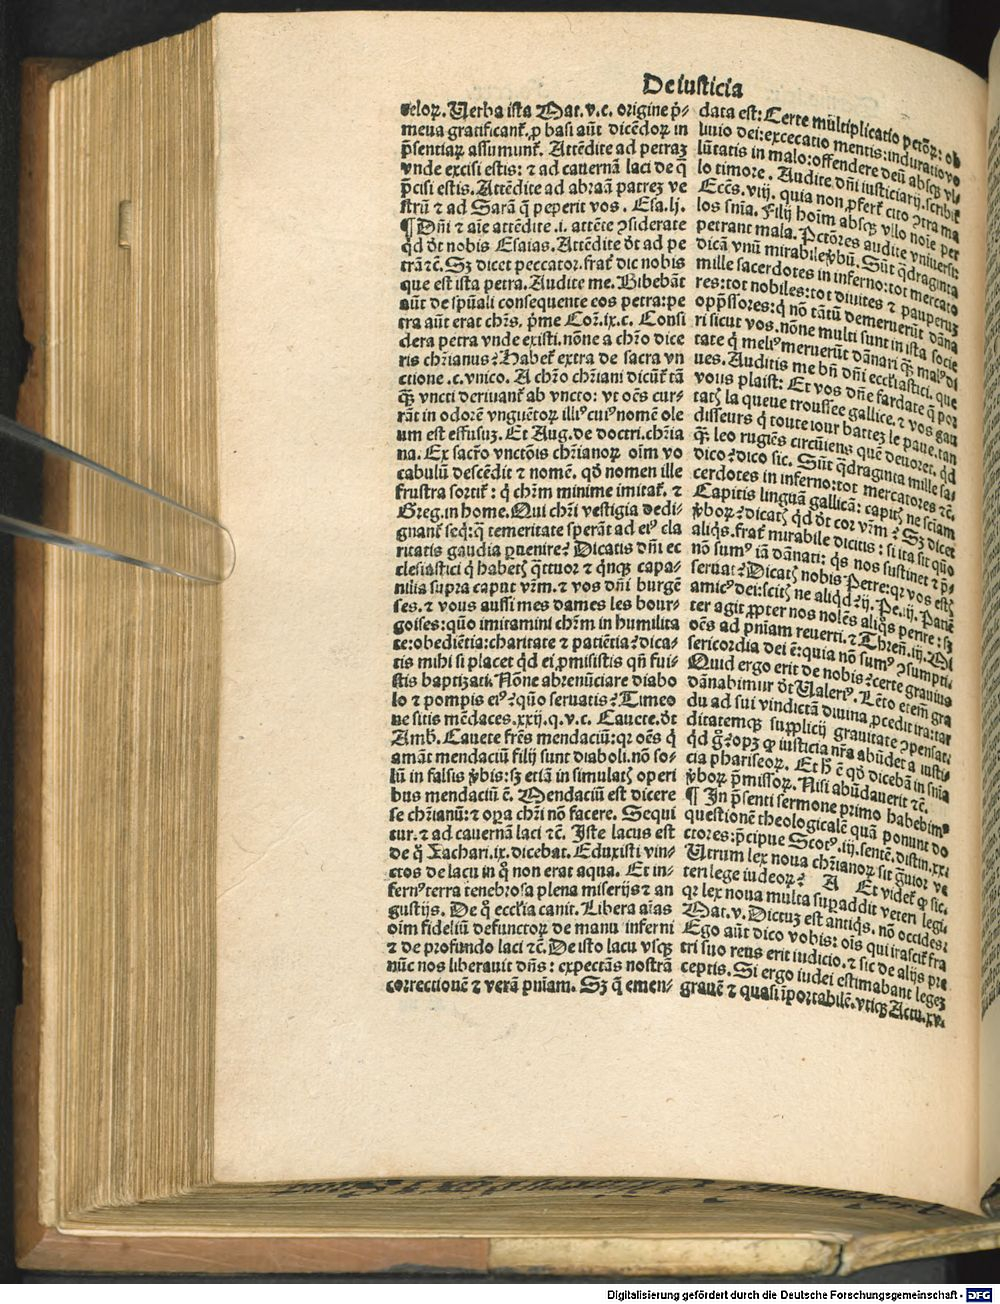 De iusticia
celoꝝ. Verba ista Mat. v. c. origine p̄-
meua gratificanť. ꝓ basi aūt dicēdoꝝ in
p̄sentiaꝝ assumunť. Attēdite ad petraʒ
vnde excisi estis: ⁊ ad cauernā laci de q̄
p̄cisi estis. Attēdite ad abraā patreʒ ve
strū ⁊ ad Sarā q̄ peperit vos. Esa. lj.
¶ Dn̄i ⁊ aīe attēdite .i. attēte ꝯsiderate
qd̄ dt̄ nobis Esaias. Attēdite dt̄ ad pe
trā ⁊c̄. Sʒ dicet peccator. frať dic nobis
que est ista petra. Audite me. Bibebāt
aūt de spūali consequente eos petra: pe
tra aūt erat chr̄s. p̄me Cor̄. ix. c. Consi
dera petra vnde existi. nōne a chr̄o dice
ris chr̄ianus? Habeť extra de sacra vn
ctione .c. vnico. A chr̄o chr̄iani dicūť tā
qꝫ vncti deriuanť ab vncto: vt oēs cur-
rāt in odorē vnguētoꝝ illiꝰ cuiꝰ nomē ole
um est effusuʒ. Et Aug. de doctri. chr̄ia
na. Ex sacr̄o vnctōis chr̄ianoꝝ oīm vo
cabulū descēdit ⁊ nomē. qđ nomen ille
frustra sortiť: q̄ chr̄m minime imitať. ⁊
Greg. in home. Qui chr̄i vestigia dedi-
gnanť seq̄: q̄ temeritate sperāt ad eiꝰ cla
ritatis gaudia ꝑuenire? Dicatis dn̄i ec
clesiastici q̄ habetꝭ q̄ttuor ⁊ q̄nqꝫ capa-
nilia supra caput vr̄m. ⁊ vos dn̄i burgē
ses. ⁊ vous aussi mes dames les bour-
goises: quō imitamini chr̄m in humilita
te: obediētia: charitate ⁊ patiētia? dica-
tis mihi si placet qd̄ ei ꝓmisistis qn̄ fui-
stis baptizati. Nōne abrenūciare diabo
lo ⁊ pompis eiꝰ? quō seruatis? Timeo
ne sitis mēdaces. xxij. q. v. c. Cauete. dt̄
Amb. Cauete fr̄es mendaciū: qꝛ oēs q̄
amāt mendaciū filij sunt diaboli. nō so-
lū in falsis v̄bis: sʒ etiā in simulatꝭ operi
bus mendaciū ē. Mendaciū est dicere
se chr̄ianū: ⁊ oꝑa chr̄i nō facere. Sequi
tur. ⁊ ad cauernā laci ⁊c̄. Iste lacus est
de q̄ Zachari. ix. dicebat. Eduxisti vin-
ctos de lacu in q̄ non erat aqua. Et in-
fernꝰ terra tenebrosa plena miserijs ⁊ an
gustijs. De q̄ eccľia canit. Libera aīas
oīm fideliū defunctoꝝ de manu inferni
⁊ de profundo laci ⁊c̄. De isto lacu vsqꝫ
nūc nos liberauit dn̄s: expectās nostrā
correctionē ⁊ verā pn̄iam. Sʒ q̄ emen-
data est: Certe multiplicatio petōꝝ: ob
liuio dei: excecatio mentis: induratio vo
lūtatis in malo: offendere deū absqꝫ vl-
lo timore. Audite dn̄i iusticiarij. scribiť
Ecēs. viij. quia non ꝓferť cito ꝯtra ma
los snīa. Filij hoīm absqꝫ vllo noīe per
petrant mala. Pctōres audite vniuersi:
dicā vnū mirabile v̄bū. Sūt q̄draginta
mille sacerdotes in inferno: tot mercato
res: tot nobiles: tot diuites ⁊ pauperuʒ
opp̄ssores: q̄ nō tātū demeruerūt dāna
ri sicut vos. nōne multi sunt in ista socie
tate q̄ meliꝰ meruerūt dānari qꝫ malꝰ di
ues. Auditis me bn̄ dn̄i eccľiastici. que
vous plaist: Et vos dn̄e fardate q̄ por
tatꝭ la queue troussee gallice. ⁊ vos gau
disseurs q̄ toute iour battez le paue. tan
qꝫ leo rugiēs circūiens quē deuoret. qd̄
dico? dico sic. Sūt q̄draginta mille sa-
cerdotes in inferno: tot mercatores ⁊c̄.
Capitis linguā gallicā: capitꝭ ne sciam
v̄boꝝ? dicatꝭ qd̄ dt̄ cor vr̄m? Sʒ dicet
aliqs. frať mirabile dicitis: si ita sit quō
nō sumꝰ iā dānati: q̄s nos sustinet ⁊ p̄-
seruat? Dicatꝭ nobis Petre: qꝛ vos estꝭ
amicꝰ dei: scitꝭ ne aliqd? ij. Pe. ij. Patiē
ter agit ꝓpter nos nolēs aliq̄s perire: sʒ
oēs ad pn̄iam reuerti. ⁊ Thren̄. iij. Mi
sericordia dei ē: quia nō sumꝰ ꝯsumpti.
Quid ergo erit de nobis? certe grauius
dānabimur dt̄ Valeriꝰ. Lēto eteм̄ gra
du ad sui vindictā diuina ꝓcedit ira: tar
ditatemqꝫ supplicij grauitate ꝯpensat.
qd̄ g̊? opʒ ꝙ iusticia nr̄a abūdet a iusti-
cia phariseoꝝ. Et h̄ ē qđ dicebā in snīa
v̄boꝝ p̄missoꝝ. Nisi abūdauerit ⁊c̄.
¶ In p̄senti sermone primo habebimꝰ
questionē theologicalē quā ponunt do
ctores: p̄cipue Scotꝰ. iij. sentē. distin. xx.
Vtrum lex noua chr̄ianoꝝ sit g̊uior ve
teri lege iudeoꝝ? A Et videť ꝙ sic.
qꝛ lex noua multa suꝑaddit veteri legi.
Mat. v. Dictuʒ est antiq̄s. nō occides:
Ego aūt dico vobis: oīs qui irasciť fra
tri suo reus erit iudicio. ⁊ sic de alijs pre
ceptis. Si ergo iudei estimabant legeʒ
grauē ⁊ quasi īportabilē. vtiqꝫ Actu. xv.
Digitalisierung gefördert durch die Deutsche Forschungsgemeinschaft - DFG